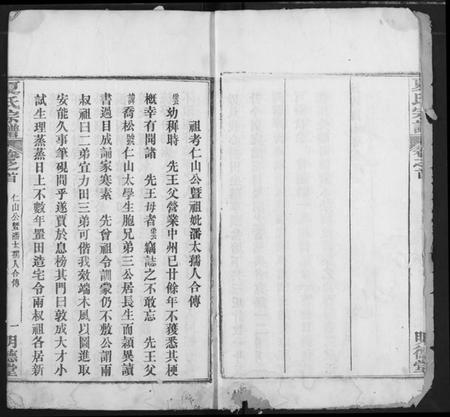 夏氏宗譜
卷之首
明德堂
祖考仁山公暨祖妣潘太孺人合傳
雲幼稚時 先王父營業中州已廿餘年不獲悉其梗
概幸有聞諸 先王母者雲竊誌之不敢忘 先王父
諱喬松號仁山太學生胞兄弟三公居長生而穎異讀
書過目成誦家寒素 先曾祖令訓蒙仍不敷公謂兩
叔祖曰二弟宜力田三弟可偕我效端木風以圖進取
安能久事筆硯間乎遂賈於息榜其門曰敦成大才小
試生理蒸蒸日上不數年置田造宅令兩叔祖各居新
夏氏宗譜
卷之首
仁山公暨潘太孺人合傳
一
明德堂